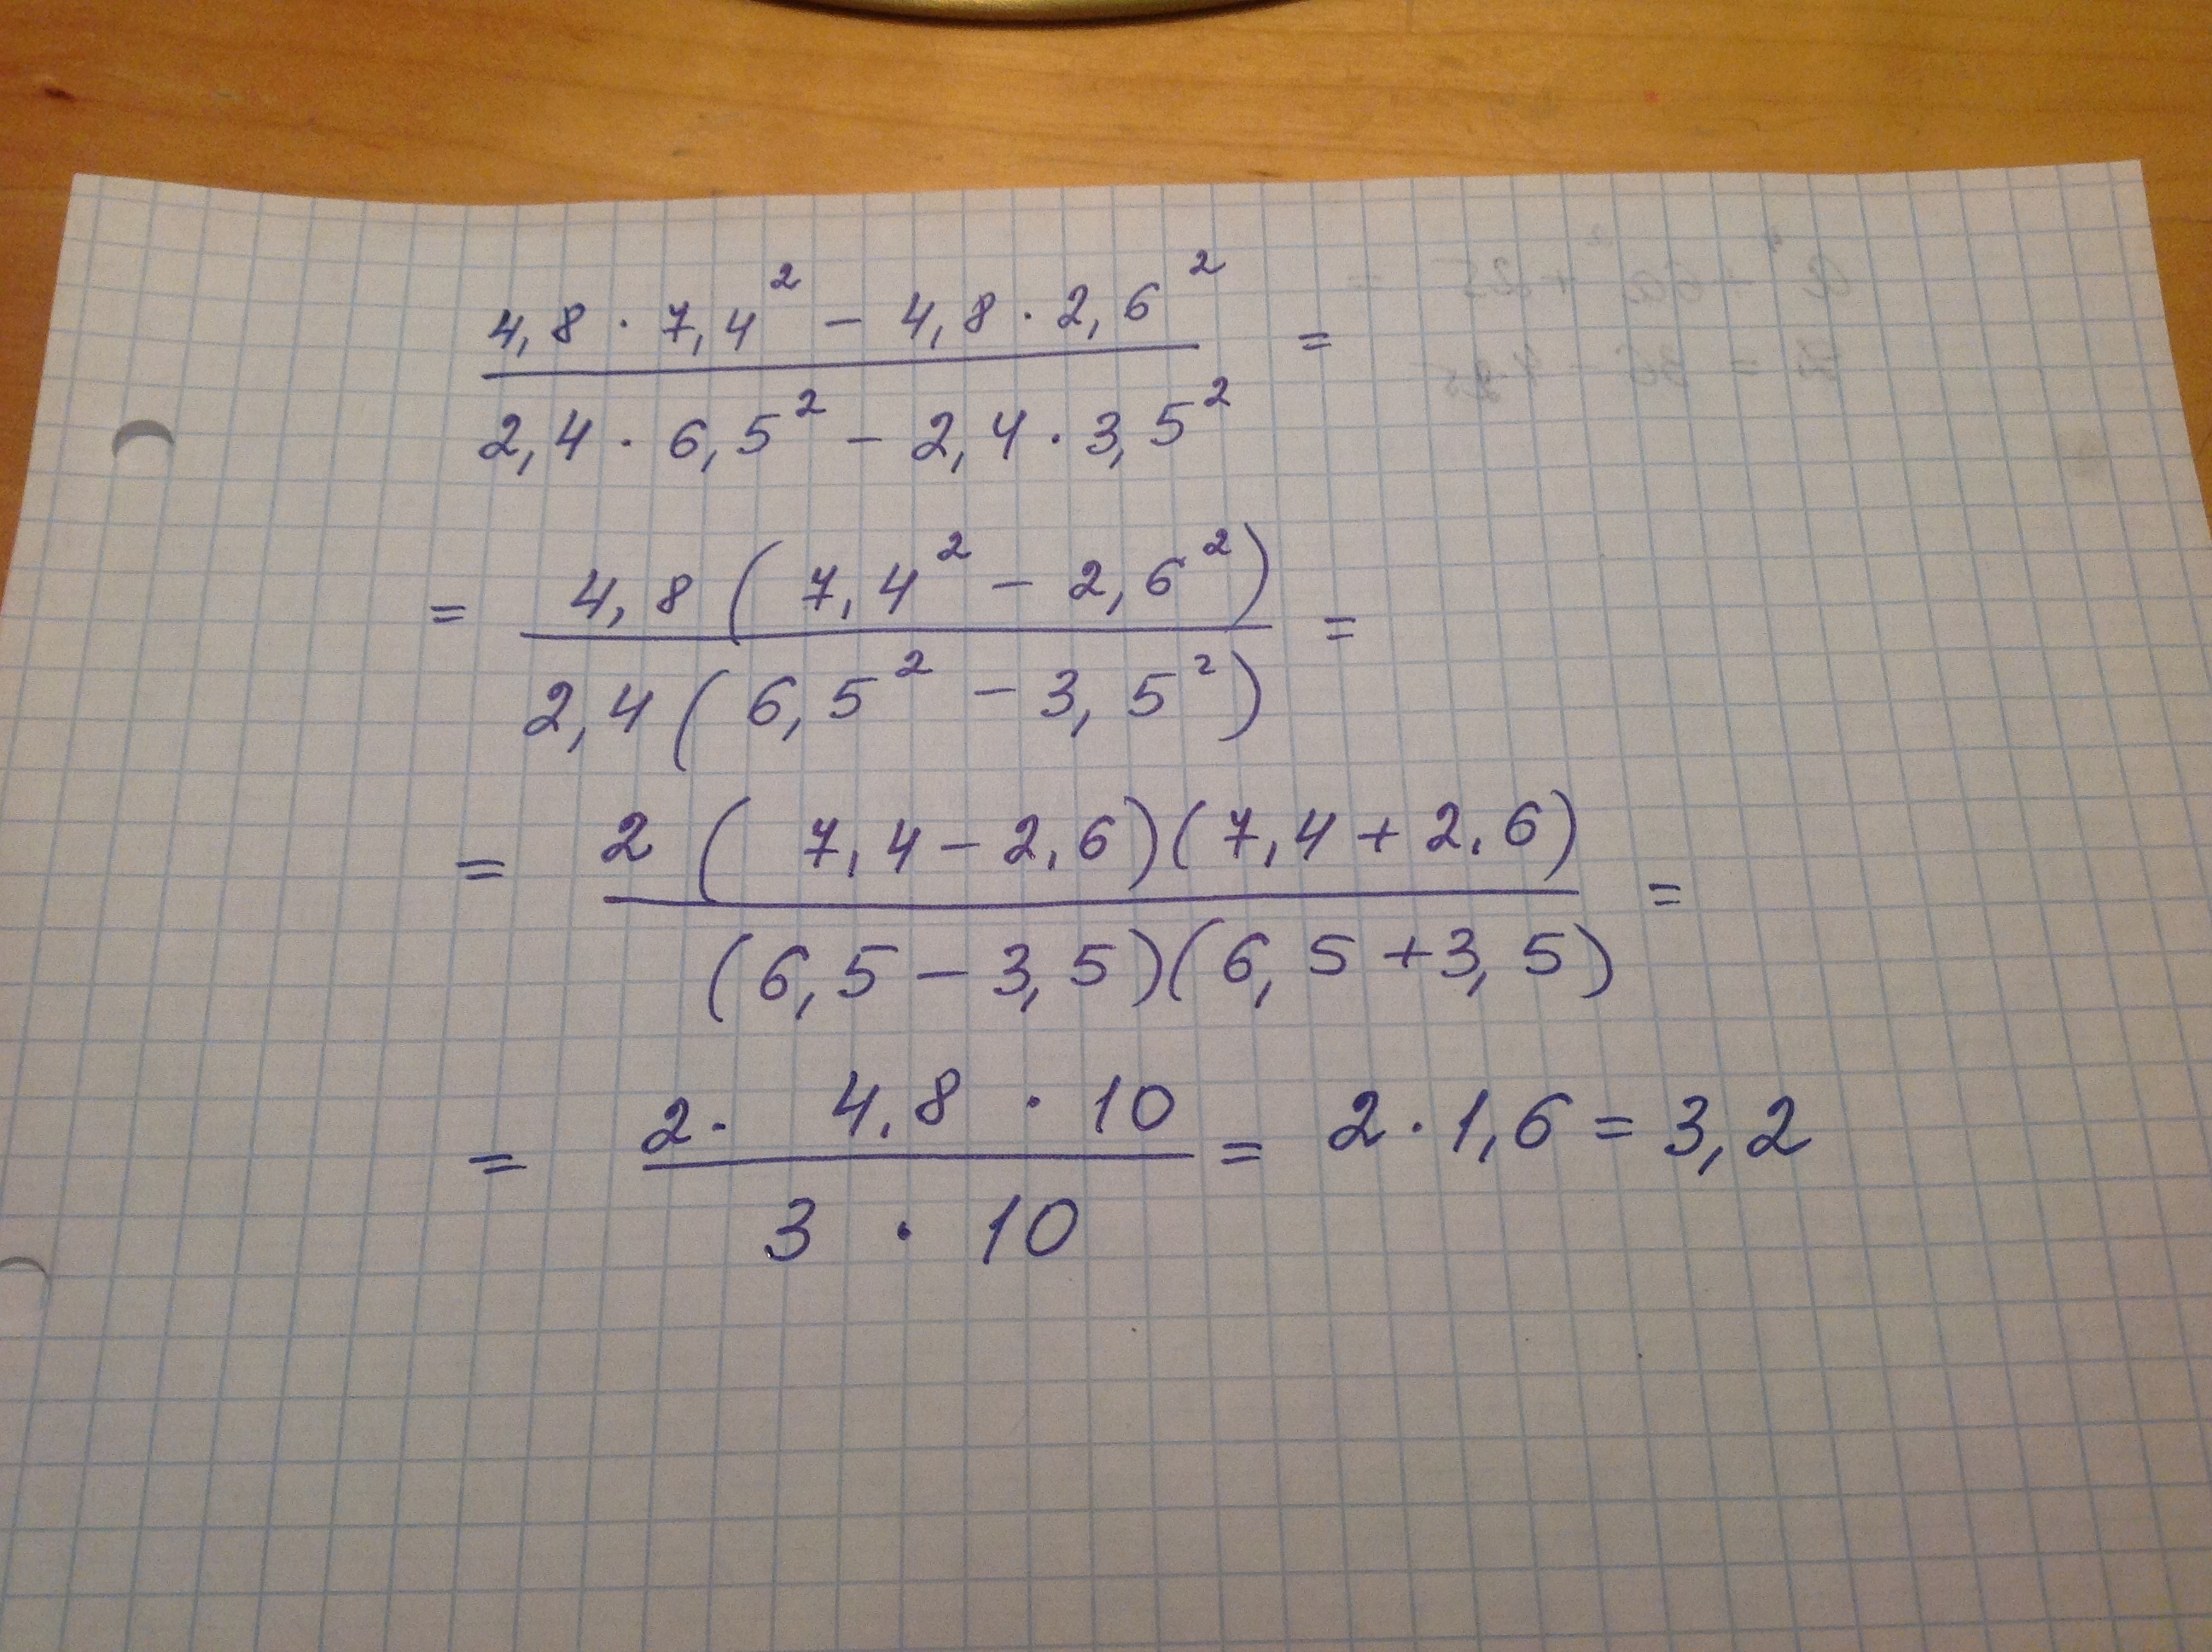 4,8 · 7,4² − 4,8 · 2,6² =
2,4 · 6,5² − 2,4 · 3,5²
= 4,8 ( 7,4² − 2,6² ) =
2,4 ( 6,5² − 3,5² )
= 2 ( 7,4 − 2,6 ) ( 7,4 + 2,6 ) =
( 6,5 − 3,5 ) ( 6,5 + 3,5 )
= 2 · 4,8 · 10 = 2 · 1,6 = 3,2
3 · 10